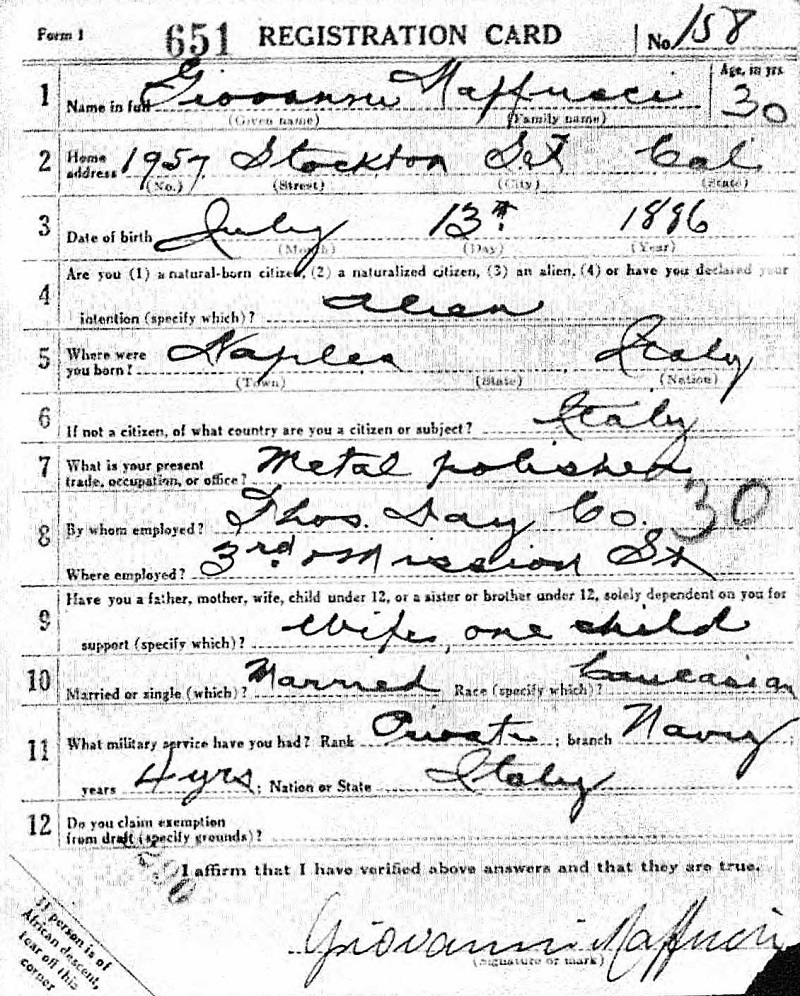 Form 1 651 REGISTRATION CARD No. 158
1 Name in full Giovanni Maffucci Age, in yrs. 30
(Given name) (Family name)
2 Home address 1957 Stockton S.F. Cal
(No.) (Street) (City) (State)
3 Date of birth July 13th 1886
(Month) (Day) (Year)
Are you (1) a natural-born citizen, (2) a naturalized citizen, (3) an alien, (4) or have you declared your
4 intention (specify which)? alien
5 Where were you born? Naples Italy
(Town) (State) (Nation)
6 If not a citizen, of what country are you a citizen or subject? Italy
7 What is your present trade, occupation, or office? Metal polisher
8 By whom employed? Thos. Day Co. 30
Where employed? 3rd & Mission St
Have you a father, mother, wife, child under 12, or a sister or brother under 12, solely dependent on you for
9 support (specify which)? Wife, one child
10 Married or single (which)? Married Race (specify which)? Caucasian
11 What military service have you had? Rank Private ; branch Navy ;
years 4 yrs ; Nation or State Italy
12 Do you claim exemption
from draft (specify grounds)?
I affirm that I have verified above answers and that they are true.
Giovanni Maffucci
(Signature or mark)
If person is of
African descent,
tear off this
corner